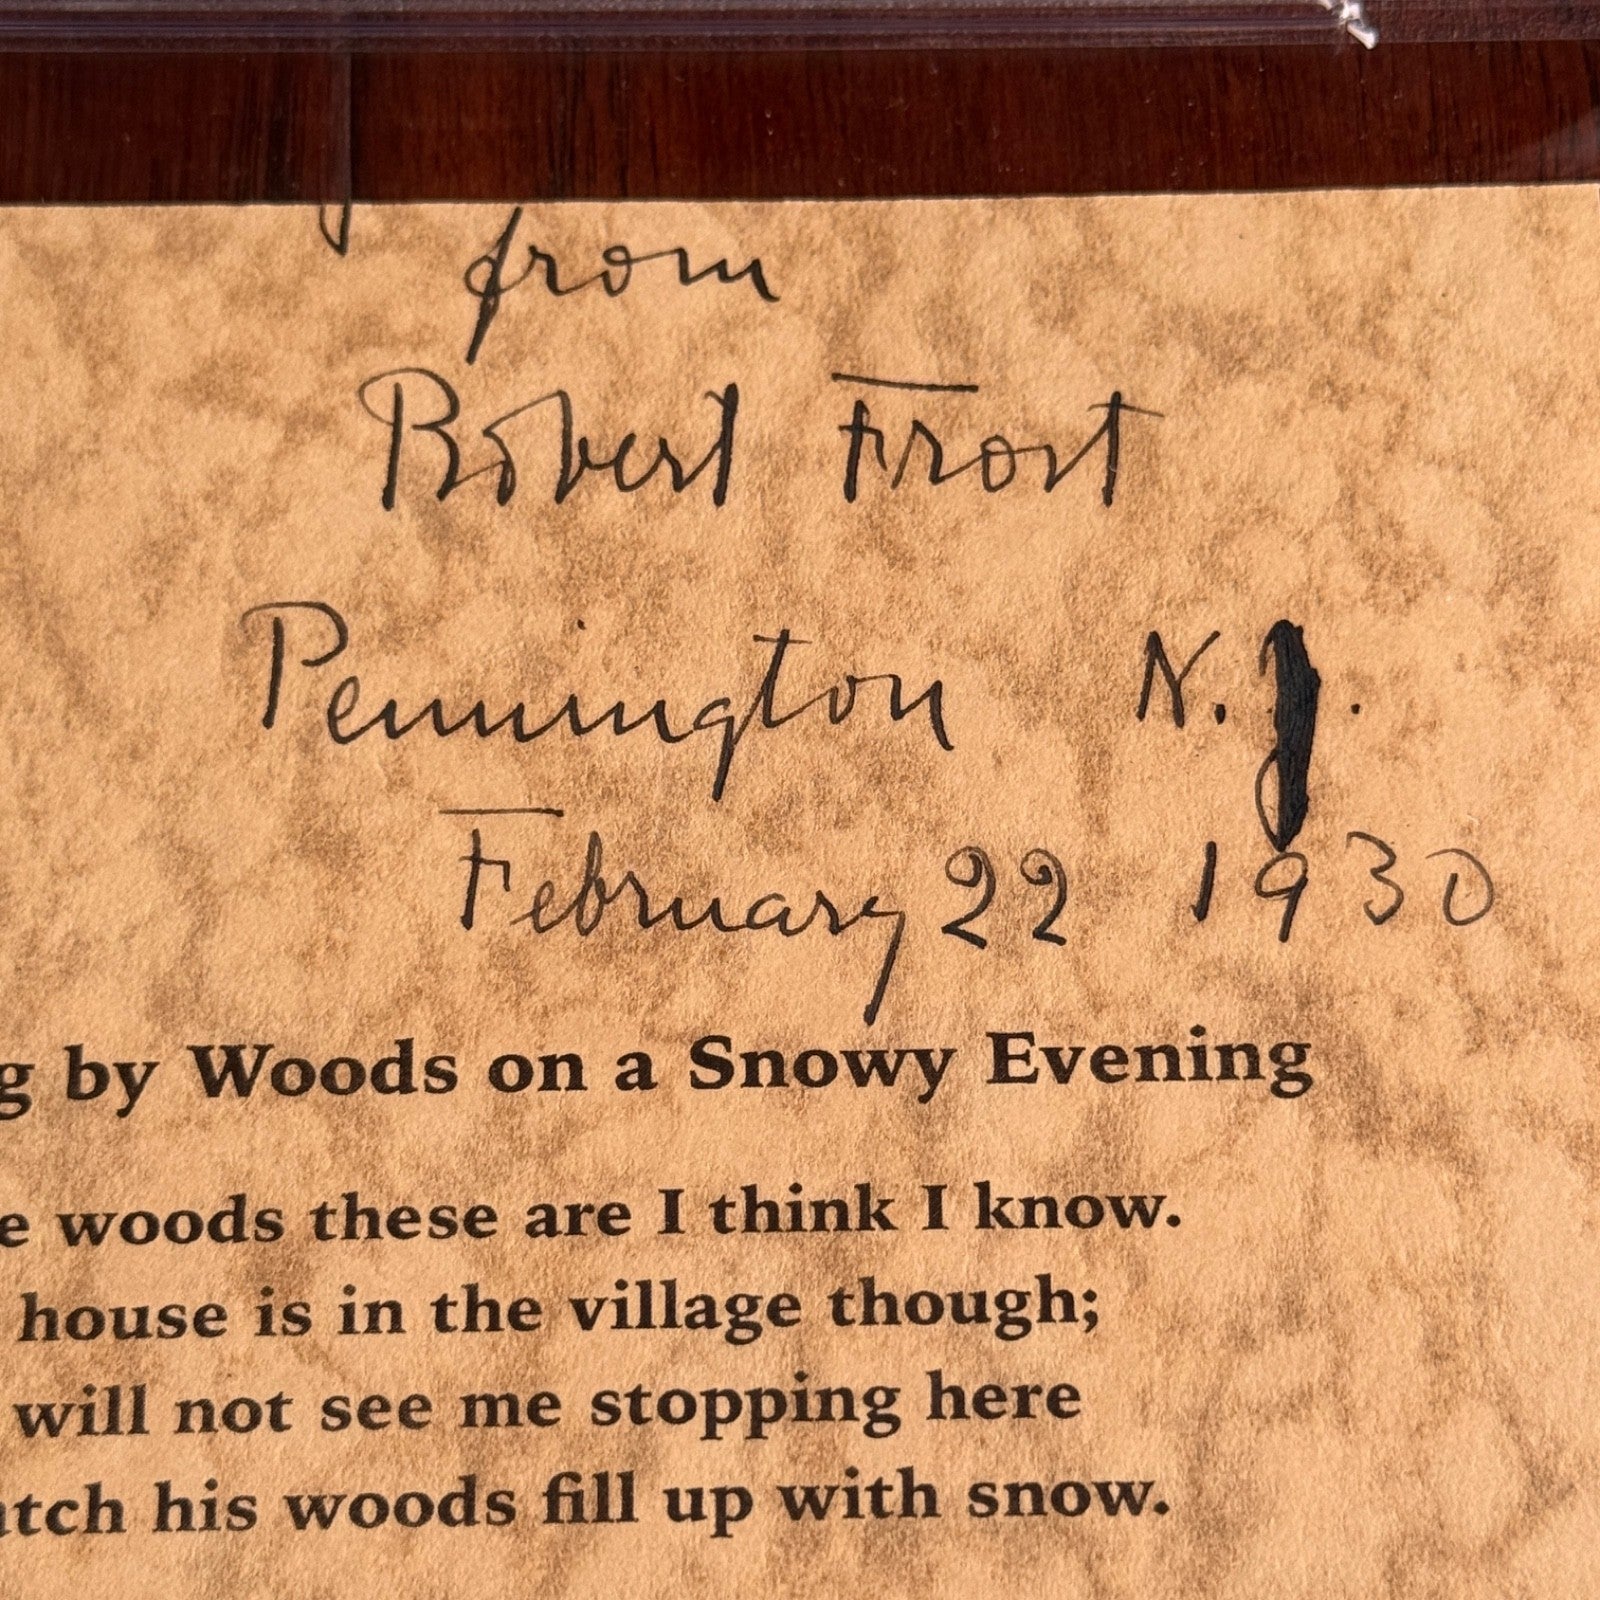 from
Robert Frost
Pennington N.J.
February 22 1930
g by Woods on a Snowy Evening
e woods these are I think I know.
house is in the village though;
will not see me stopping here
atch his woods fill up with snow.